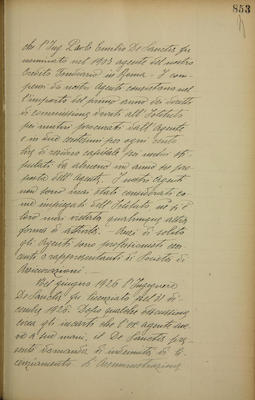 853
che l'Ing. Paolo Emilio De Sanctis fu
nominato nel 1923 agente del nostro
Credito Fondiario in Roma. - I com-
pensi da nostri Agenti consistono nel
l'importo del primo anno dei diritti
di commissione dovuti all'Istituto
per mutui procurati dall'Agente
e in due centesimi per ogni cento
lire di residuo capitale per mutui sti-
pulati da almeno un anno su pro-
posta dell'Agente. I nostri Agenti
non sono mai stati considerati co-
me impiegati dell'Istituto nè si è
loro mai vietata qualunque altra
forma di attività. Anzi di solito
gli Agenti sono professionisti eser-
centi o rappresentanti di Società di
Assicurazioni. -
Nel giugno 1926 l'Ingegnere
De Sanctis fu licenziato pel 31 di-
cembre 1926. Dopo qualche discussione
circa gli incarti che l'ex agente ave-
va a sue mani, il De Sanctis pre-
sentò domanda di indennità di li-
cenziamento. L'Amministrazione